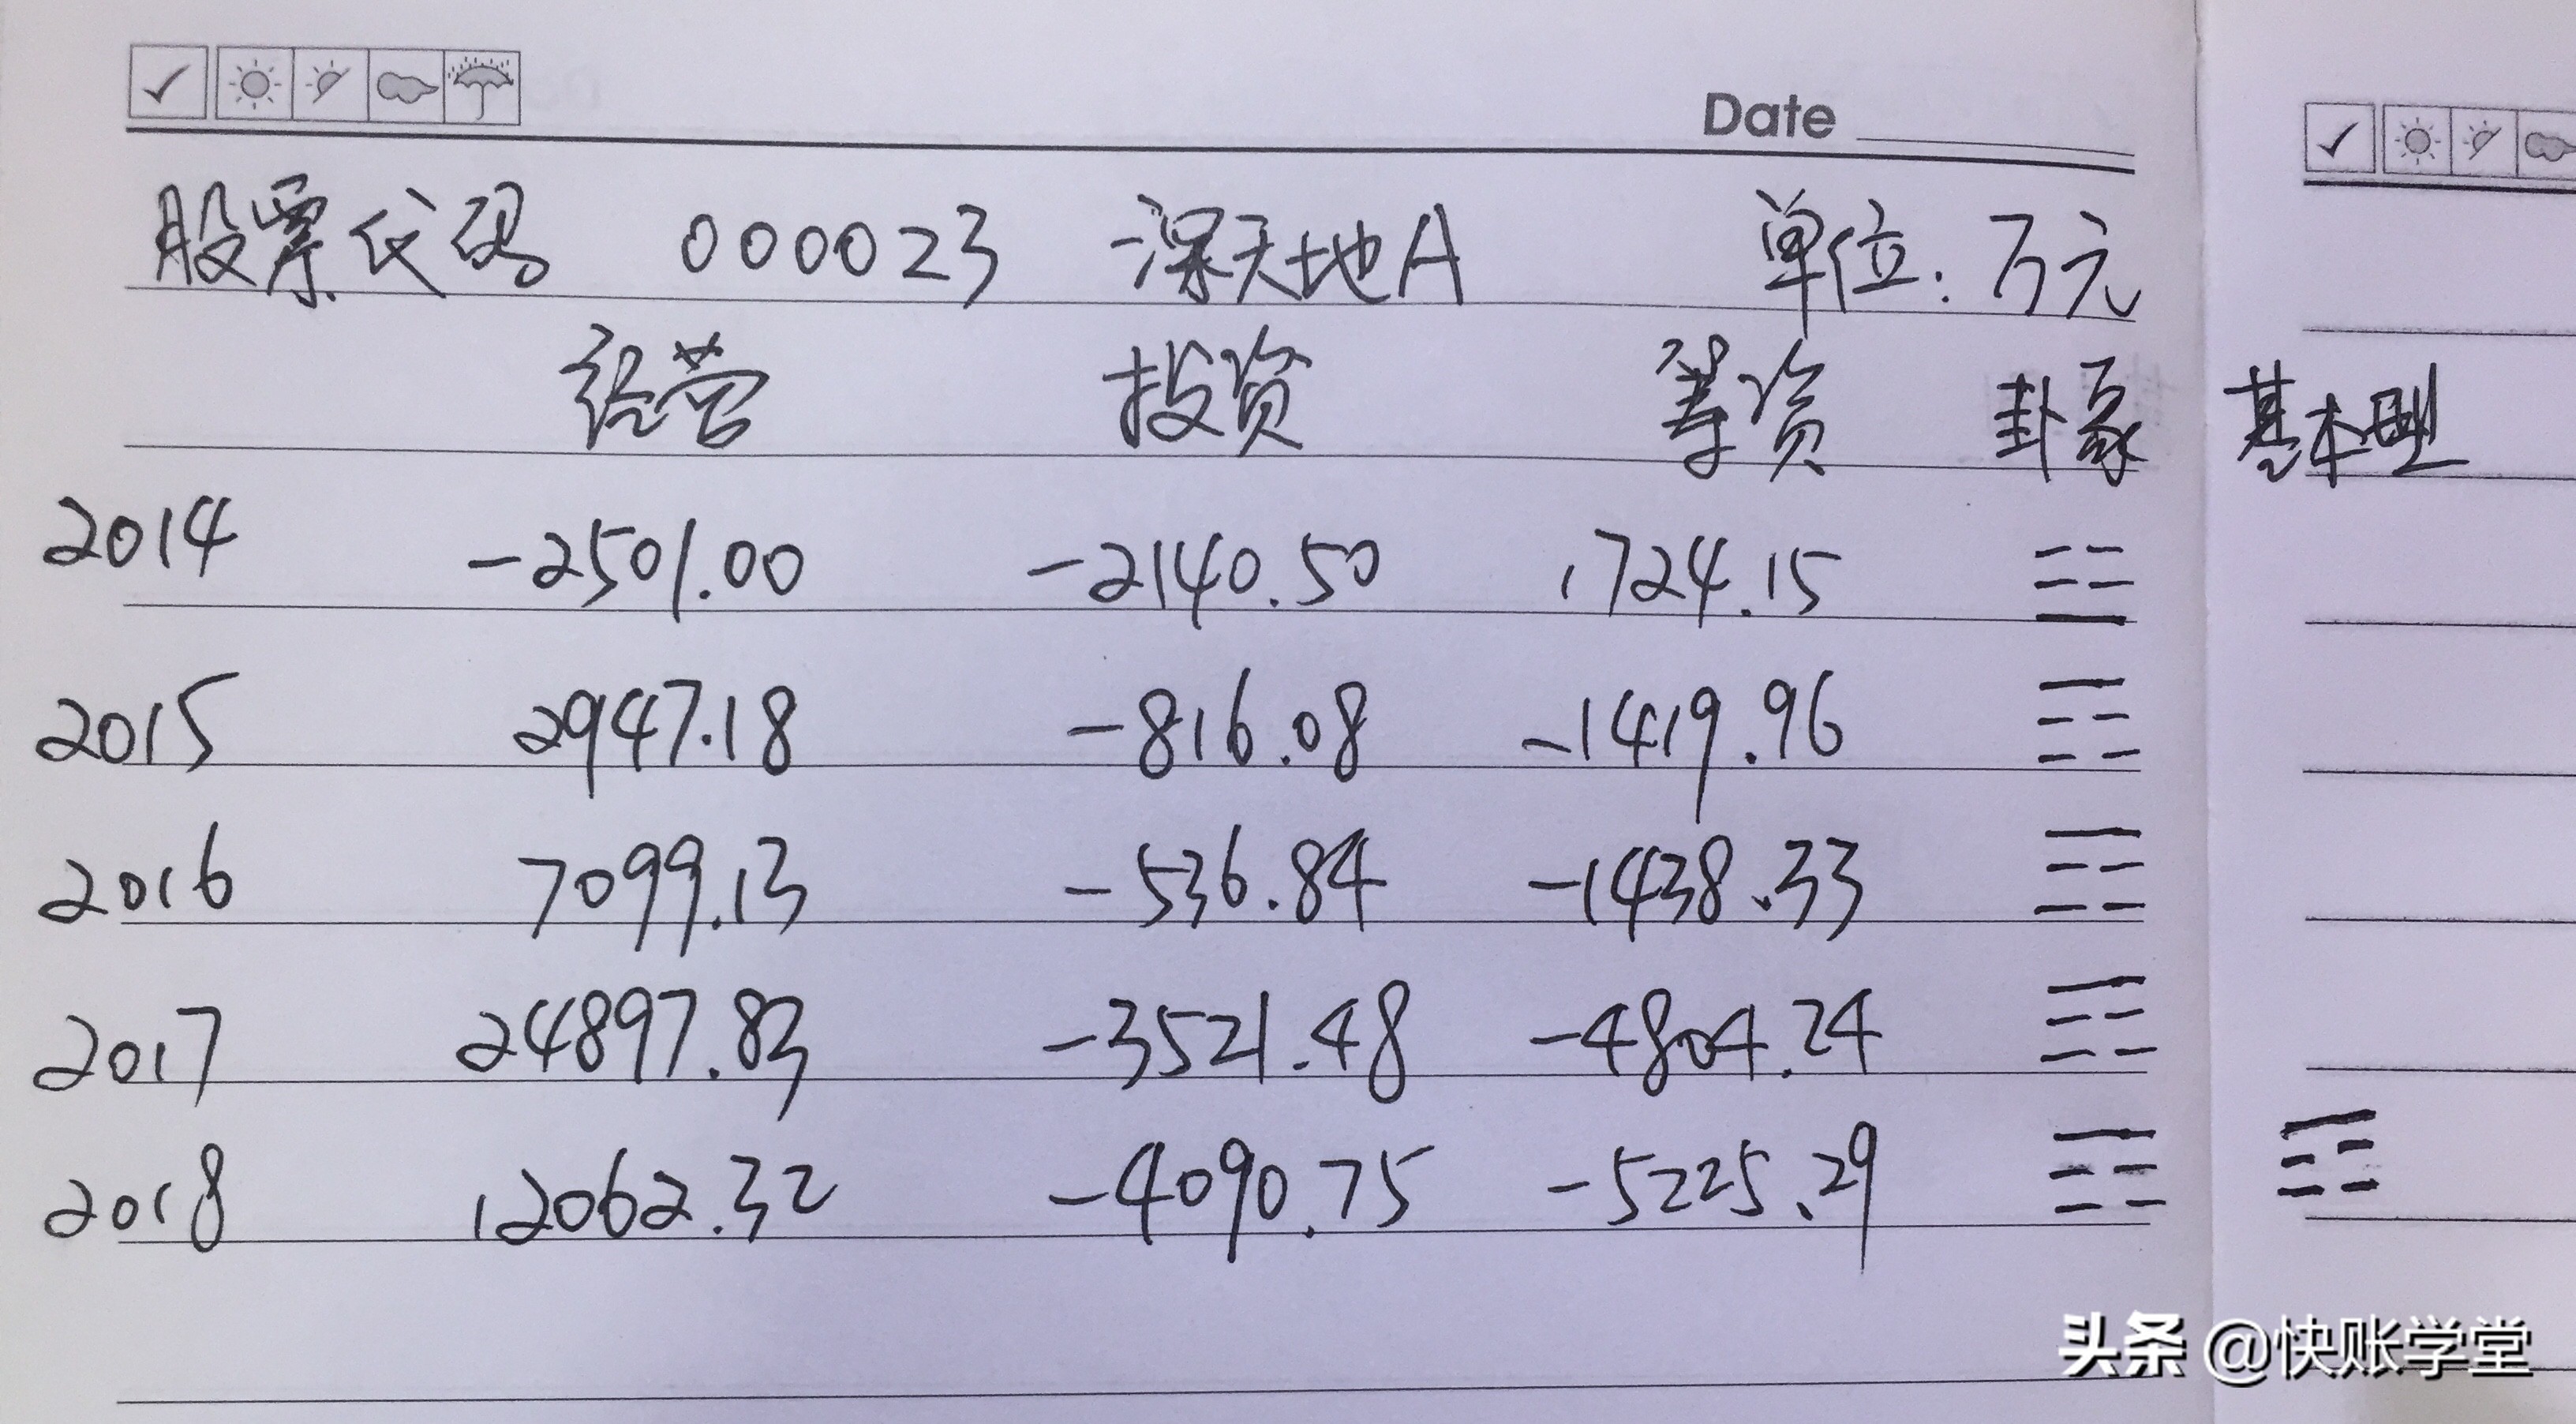 Date
股票代码 000023 深天地A 单位：万元
经营 投资 筹资 卦象 基本型
2014 -2501.00 -2140.50 1724.15 ☳
2015 2947.18 -816.08 -1419.96 ☶
2016 7099.13 -536.84 -1438.33 ☶
2017 24897.83 -3521.48 -4804.24 ☶
2018 12062.32 -4090.75 -5225.29 ☶ ☶
头条 @快账学堂